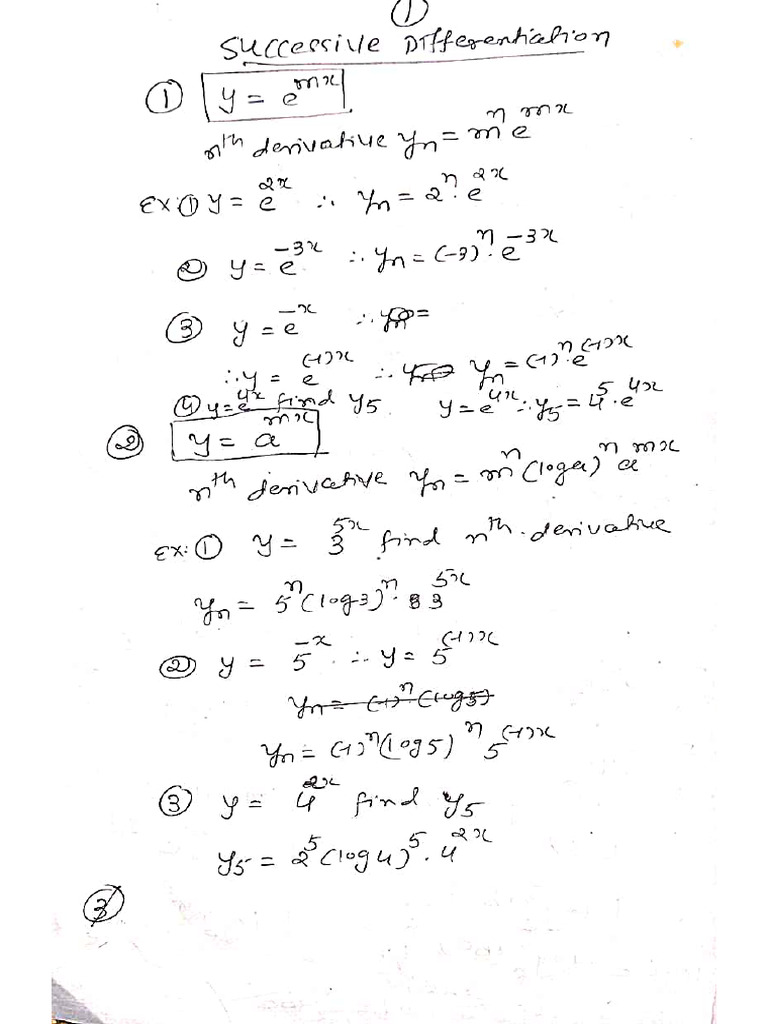 ①
Successive Differentiation
① y = e^{mx}
nth derivative yn = m^n e^{mx}
Ex: ① y = e^{2x} ∴ yn = 2^n. e^{2x}
② y = e^{-3x} ∴ yn = (-3)^n. e^{-3x}
③ y = e^{-x} ∴ =
∴ y = e^{(-1)x} ∴ yn = (-1)^n. e^{(-1)x}
④ y = e^{4x} find y5 y = e^{4x} ∴ y5 = 4^5. e^{4x}
② y = a^{mx}
nth derivative yn = m^n (log a)^n a^{mx}
Ex: ① y = 3^{5x} find nth derivative
yn = 5^n (log 3)^n. 3^{5x}
② y = 5^{-x} ∴ y = 5^{(-1)x}
yn = (-1)^n (log 5)
yn = (-1)^n (log 5)^n 5^{(-1)x}
③ y = 4^{2x} find y5
y5 = 2^5 (log 4)^5. 4^{2x}
③